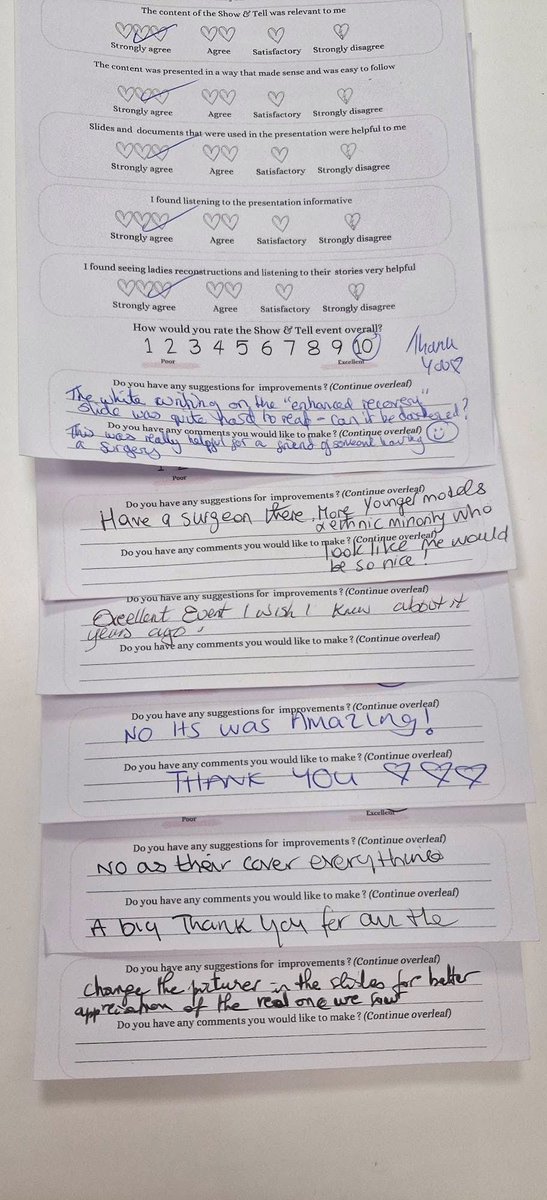 The content of the Show & Tell was relevant to me
Strongly agree Agree Satisfactory Strongly disagree
The content was presented in a way that made sense and was easy to follow
Strongly agree Agree Satisfactory Strongly disagree
Slides and documents that were used in the presentation were helpful to me
Strongly agree Agree Satisfactory Strongly disagree
I found listening to the presentation informative
Strongly agree Agree Satisfactory Strongly disagree
I found seeing ladies reconstructions and listening to their stories very helpful
Strongly agree Agree Satisfactory Strongly disagree
How would you rate the Show & Tell event overall?
1 2 3 4 5 6 7 8 9 10
Poor Excellent
Thank
You
Do you have any suggestions for improvements? (Continue overleaf)
The white writing on the "enhanced recovery"
slide was quite hard to read - can it be darkened?
Do you have any comments you would like to make? (Continue overleaf)
This was really helpful for a friend of someone having
a surgery
Poor
Do you have any suggestions for improvements? (Continue overleaf)
Have a surgeon there, More younger models
& ethnic minority who
Do you have any comments you would like to make? (Continue overleaf)
look like me would
be so nice!
Do you have any suggestions for improvements? (Continue overleaf)
Excellent Event I wish I knew about it
years ago
Do you have any comments you would like to make? (Continue overleaf)
Do you have any suggestions for improvements? (Continue overleaf)
NO ITS was AMAZING!
Do you have any comments you would like to make? (Continue overleaf)
THANK YOU
Poor Excellent
Do you have any suggestions for improvements? (Continue overleaf)
NO as their cover everything
Do you have any comments you would like to make? (Continue overleaf)
A big Thank You for all the
Do you have any suggestions for improvements? (Continue overleaf)
Change the picturer in the slides for better
of the real one we saw
Do you have any comments you would like to make? (Continue overleaf)